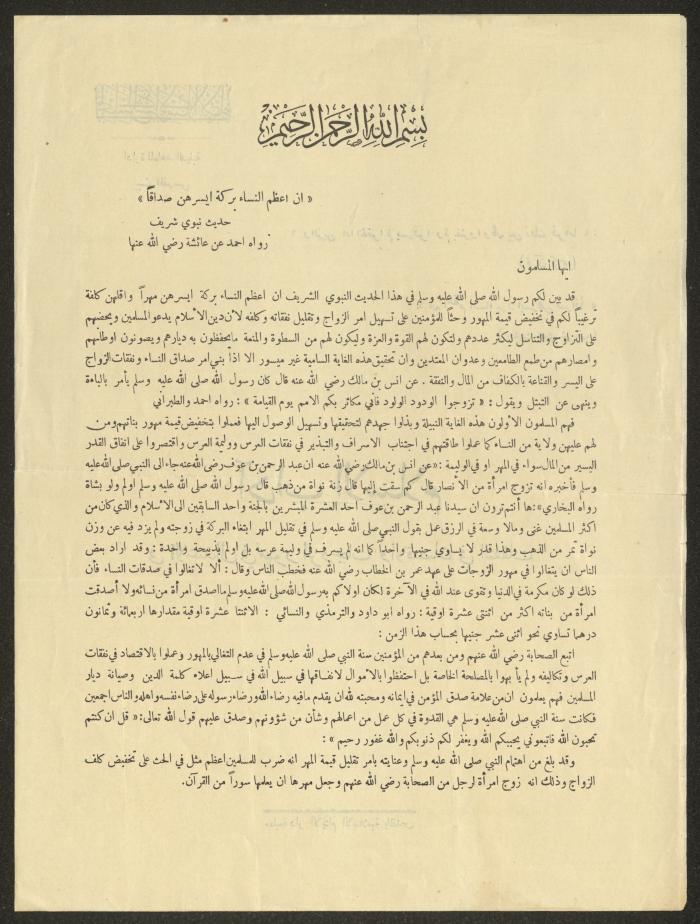 بسم الله الرحمن الرحيم
« ان اعظم النساء بركة ايسرهن صداقاً »
حديث نبوي شريف
رواه احمد عن عائشة رضي الله عنها
ايها المسلمون
قد بين لكم رسول الله صلى الله عليه وسلم في هذا الحديث النبوي الشريف ان اعظم النساء بركة ايسرهن مهراً واقلهن كلفة
ترغيباً لكم في تخفيض قيمة المهور وحثاً للمؤمنين على تسهيل امر الزواج وتقليل نفقاته وكلفه لأن دين الاسلام يدعو المسلمين ويحضهم
على التزاوج والتناسل ليكثر عددهم ولتكون لهم القوة والعزة وليكون لهم من السطوة والمنعة مايحفظون به ديارهم ويصونون اوطانهم
وامصارهم من طمع الطامعين وعدوان المعتدين وان تحقيق هذه الغاية السامية غير ميسور الا اذا بني امر صداق النساء ونفقات الزواج
على اليسر والقناعة بالكفاف من المال والنفقة . عن انس بن مالك رضي الله عنه قال كان رسول الله صلى الله عليه وسلم يأمر بالباءة
وينهى عن التبتل ويقول : « تزوجوا الودود الولود فأني مكاثر بكم الامم يوم القيامة » : رواه احمد والطبراني
فهم المسلمون الأولون هذه الغاية النبيلة وبذلوا جهدهم لتحقيقها وتسهيل الوصول اليها فعملوا بتخفيض قيمة مهور بناتهم ومن
لهم عليهن ولاية من النساء كما عملوا طاقتهم في اجتناب الاسراف والتبذير في نفقات العرس ووليمة العرس واقتصروا على انفاق القدر
اليسير من المال سواء في المهر او في الوليمة : «عن انس بن مالك رضي الله عنه ان عبد الرحمن بن عوف رضي الله عنه جاء الى النبي صلى الله عليه
وسلم فأخبره انه تزوج امرأة من الأنصار قال كم سقت إليها قال زنة نواة من ذهب قال رسول الله صلى الله عليه وسلم اولم ولو بشاة
رواه البخاري»: ها أنتم ترون ان سيدنا عبد الرحمن بن عوف احد العشرة المبشرين بالجنة واحد السابقين الى الاسلام والذي كان من
اكثر المسلمين غنى ومالا وسعة في الرزق عمل بقول النبي صلى الله عليه وسلم في تقليل المهر ابتغاء البركة في زوجته ولم يزد فيه عن وزن
نواة تمر من الذهب وهذا قدر لا يساوي جنيها واحداً كما انه لم يسرف في وليمة عرسه بل اولم بذبيحة واحدة : وقد اراد بعض
الناس ان يتغالوا في مهور الزوجات على عهد عمر بن الخطاب رضي الله عنه فخطب الناس وقال : ألا لا تغالوا في صدقات النساء فأن
ذلك لو كان مكرمة في الدنيا وتقوى عند الله في الآخرة لكان اولاكم به رسول الله صلى الله عليه وسلم ما اصدق امرأة من نسائه ولا أصدقت
امرأة من بناته اكثر من اثنتي عشرة اوقية : رواه ابو داود والترمذي والنسائي : الاثنتا عشرة اوقية مقدارها اربعمائة وثمانون
درهما تساوي نحو اثنى عشر جنيها بحساب هذا الزمن :
اتبع الصحابة رضي الله عنهم ومن بعدهم من المؤمنين سنة النبي صلى الله عليه وسلم في عدم التغالي بالمهور وعملوا بالاقتصاد في نفقات
العرس وتكاليفه ولم يأبهوا بالمصلحة الخاصة بل احتفظوا بالأموال لانفاقها في سبيل الله في سبيل اعلاء كلمة الدين وصيانة ديار
المسلمين فهم يعلمون ان من علامة صدق المؤمن في ايمانه ومحبته لله ان يقدم مافيه رضاء الله ورضاء رسوله على رضاء نفسه واهله والناس اجمعين
فكانت سنة النبي صلى الله عليه وسلم هي القدوة في كل عمل من اعمالهم وشأن من شؤونهم وصدق عليهم قول الله تعالى: « قل ان كنتم
تحبون الله فاتبعوني يحببكم الله ويغفر لكم ذنوبكم والله غفور رحيم » :
وقد بلغ من اهتمام النبي صلى الله عليه وسلم وعنايته بامر تقليل قيمة المهر انه ضرب للمسلمين اعظم مثل في الحث على تخفيض كلف
الزواج وذلك انه زوج امرأة لرجل من الصحابة رضي الله عنهم وجعل مهرها ان يعلمها سوراً من القرآن.